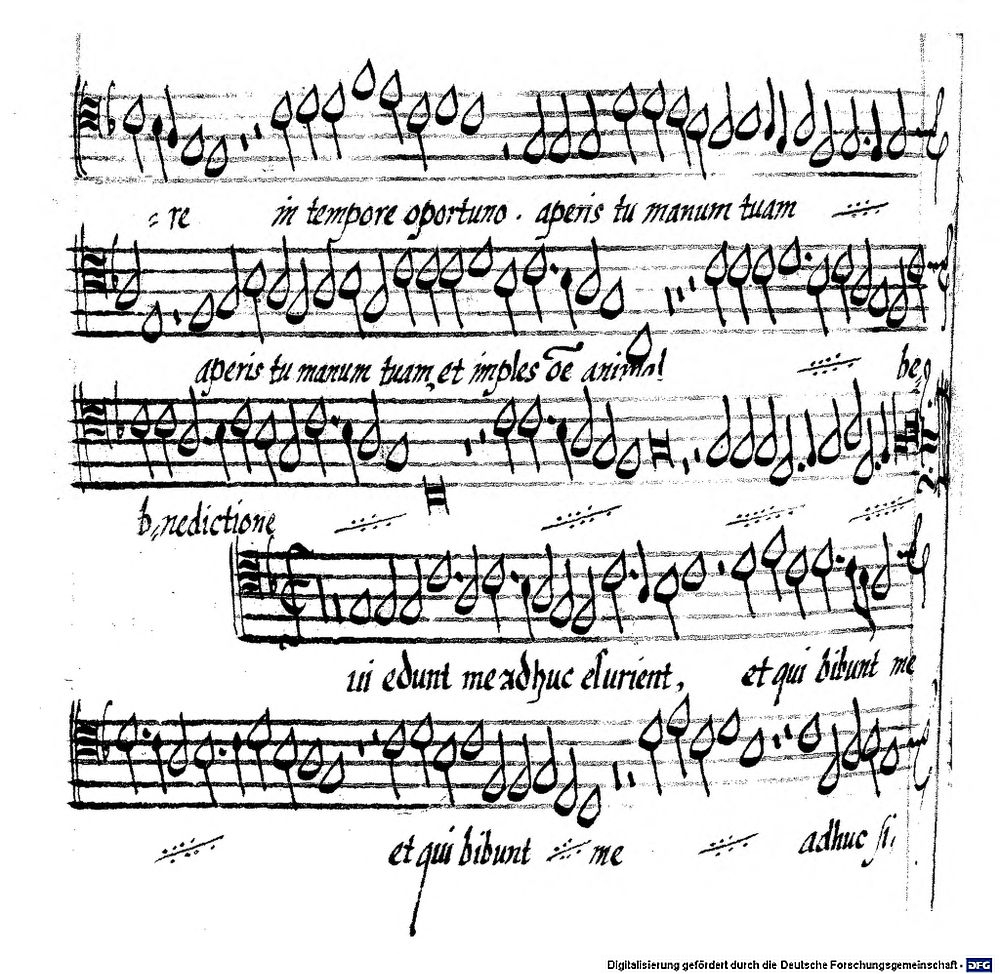 re in tempore oportuno . aperis tu manum tuam
aperis tu manum tuam, et imples oē animal be,
b,nedictione
ui edunt me adhuc esurient, et qui bibunt me
et qui bibunt me adhuc si,
Digitalisierung gefördert durch die Deutsche Forschungsgemeinschaft - DFG